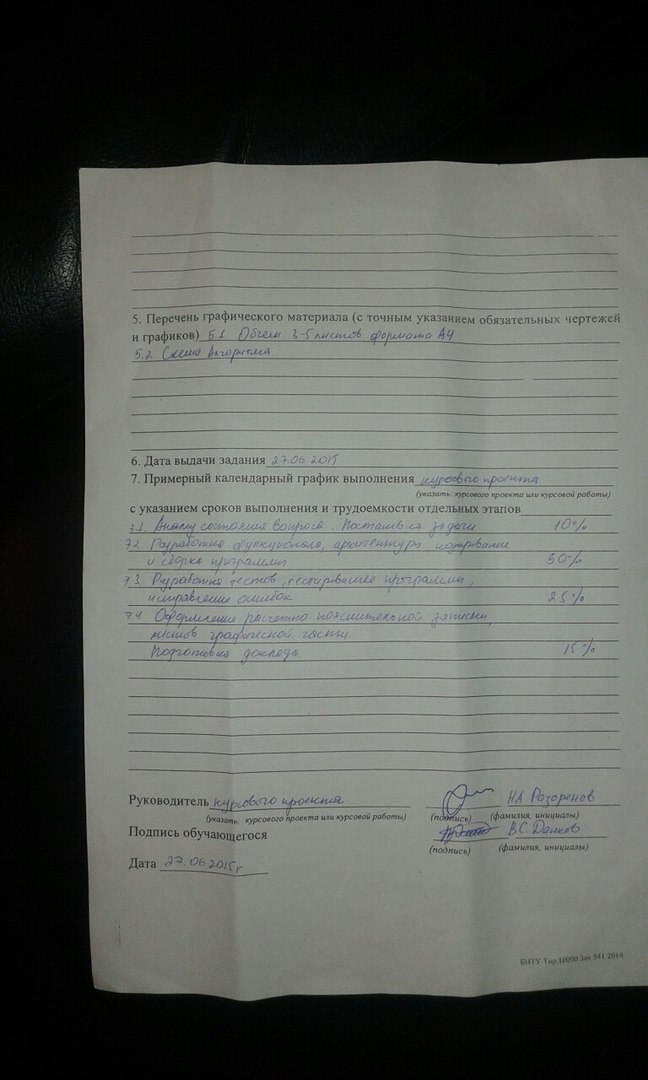 5. Перечень графического материала (с точным указанием обязательных чертежей
и графиков) 5.1 Объем 3-5 листов формата А4
5.2 Схема Алгоритма
6. Дата выдачи задания 27.06 2015
7. Примерный календарный график выполнения курсового проекта
(указать: курсового проекта или курсовой работы)
с указанием сроков выполнения и трудоемкости отдельных этапов
7.1 Анализ состояния вопроса. Постановка задачи 10%
7.2 Разработка функционала, архитектуры кодирование
и сборка программы 50%
7.3 Разработка тестов, тестирование программы,
исправление ошибок 25%
7.4 Оформление расчетно пояснительной записки,
листов графической части.
Подготовка доклада 15%
Руководитель курсового проекта Н.А. Разоренов
(указать: курсового проекта или курсовой работы) (подпись) (фамилия, инициалы)
Подпись обучающегося В.С.
(подпись) (фамилия, инициалы)
Дата 27.06 2015г
БНТУ. Тир.10000.Зак.541 2014